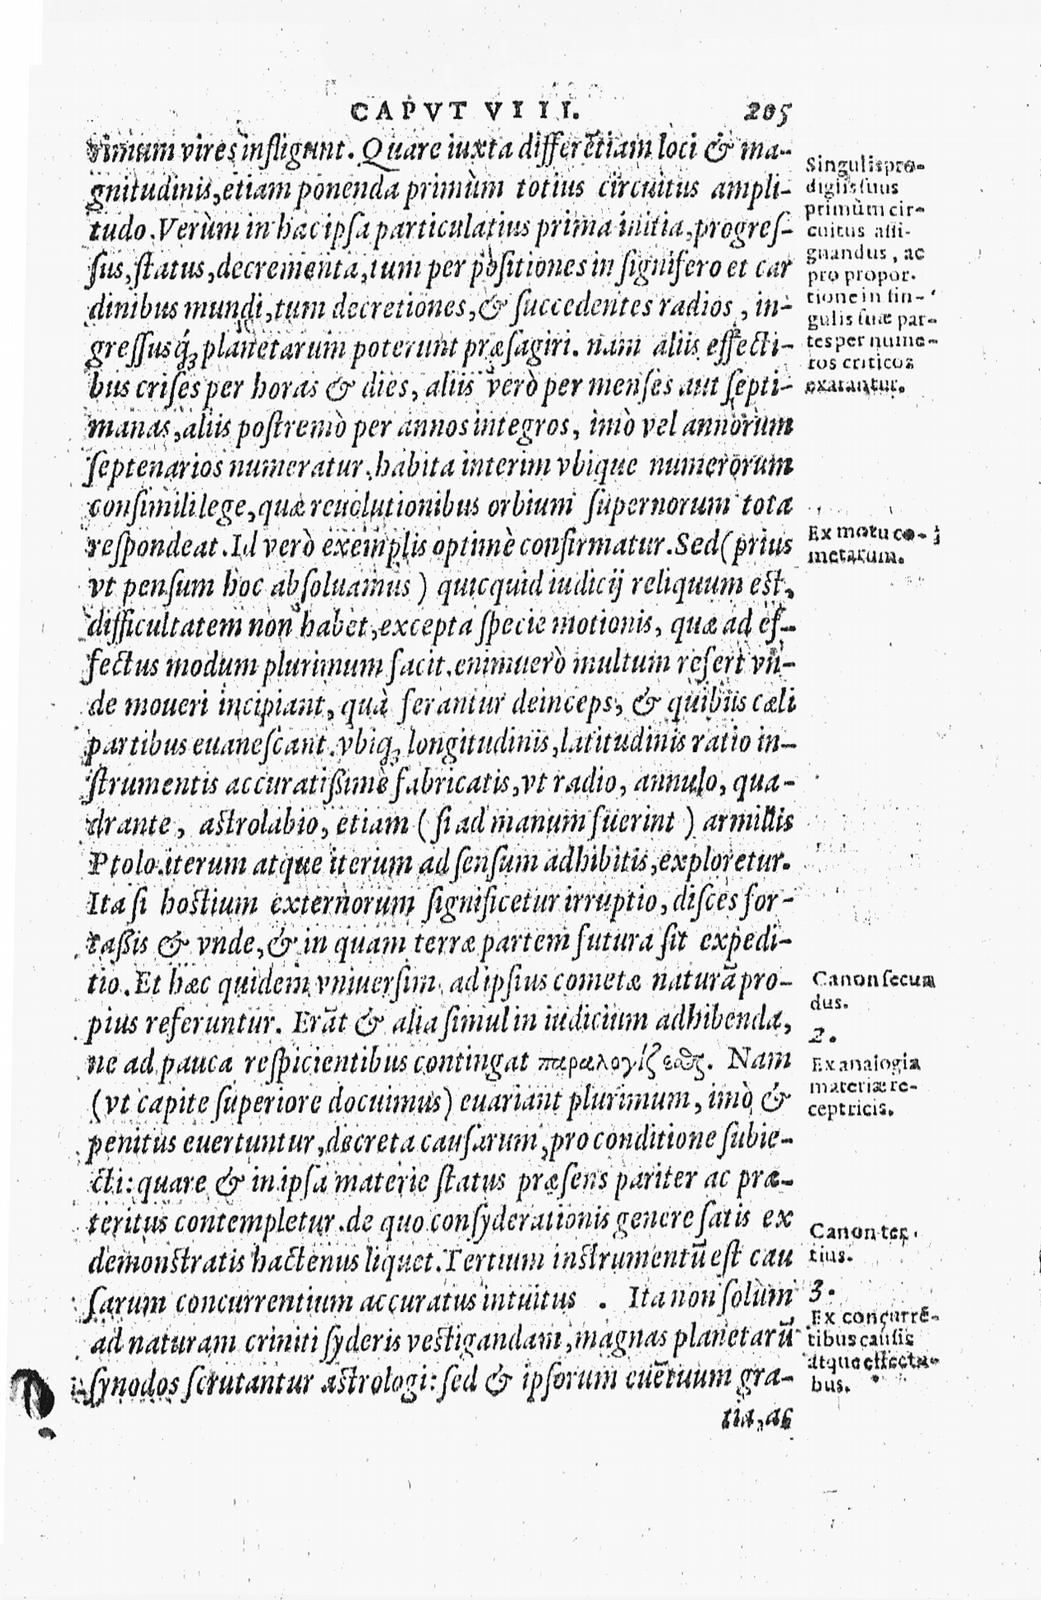 CAPVT VIII. 205
rimum vires infligunt. Quare iuxta differētiam loci & ma-
gnitudinis, etiam ponenda primùm totius circuitus ampli-
tudo. Verùm in hac ipsa particulatius prima initia, progres-
sus, status, decrementa, tum per positiones in signifero et car
dinibus mundi, tum decretiones, & succedentes radios, in-
gressusq́; planetarum poterunt præsagiri. nam aliis effecti-
bus crises per horas & dies, aliis verò per menses aut septi-
manas, aliis postremò per annos integros, imò vel annorum
septenarios numeratur. habita interim vbique numerorum
consimili lege, quæ reuolutionibus orbium supernorum tota
respondeat. Id verò exemplis optimè confirmatur. Sed (prius
vt pensum hoc absoluamus) quicquid iudicij reliquum est,
difficultatem non habet, excepta specie motionis, quæ ad ef-
fectus modum plurimum facit. enimuerò multum refert vn-
de moueri incipiant, quà ferantur deinceps, & quibus cæli
partibus euanescant. vbiq; longitudinis, latitudinis ratio in-
strumentis accuratißimè fabricatis, vt radio, annulo, qua-
drante, astrolabio, etiam (si ad manum fuerint) armillis
Ptolo. iterum atque iterum ad sensum adhibitis, exploretur.
Ita si hostium externorum significetur irruptio, disces for-
taßis & vnde, & in quam terræ partem futura sit expedi-
tio. Et hæc quidem vniuersim ad ipsius cometæ naturā pro-
pius referuntur. Erāt & alia simul in iudicium adhibenda,
ne ad pauca respicientibus contingat παραλογίζεσθαι. Nam
(vt capite superiore docuimus) euariant plurimum, imò &
penitus euertuntur, decreta causarum, pro conditione subie-
cti: quare & in ipsa materie status præsens pariter ac præ-
teritus contempletur. de quo consyderationis genere satis ex
demonstratis hactenus liquet. Tertium instrumentū est cau
sarum concurrentium accuratus intuitus . Ita non solùm
ad naturam criniti syderis vestigandam, magnas planetarū
synodos scrutantur astrologi: sed & ipsorum euētuum gra-
tia, ac
Singulis pro-
digiis suus
primùm cir-
cuitus assi-
gnandus, ac
pro propor-
tione in sin-
gulis suæ par-
tes per nume-
ros criticos
exarantur.
Ex motu co-
metarum.
Canon secun
dus.
2.
Ex analogia
materiæ re-
ceptricis.
Canon ter-
tius.
3.
Ex concurrē-
tibus causis
atque effectu-
bus.